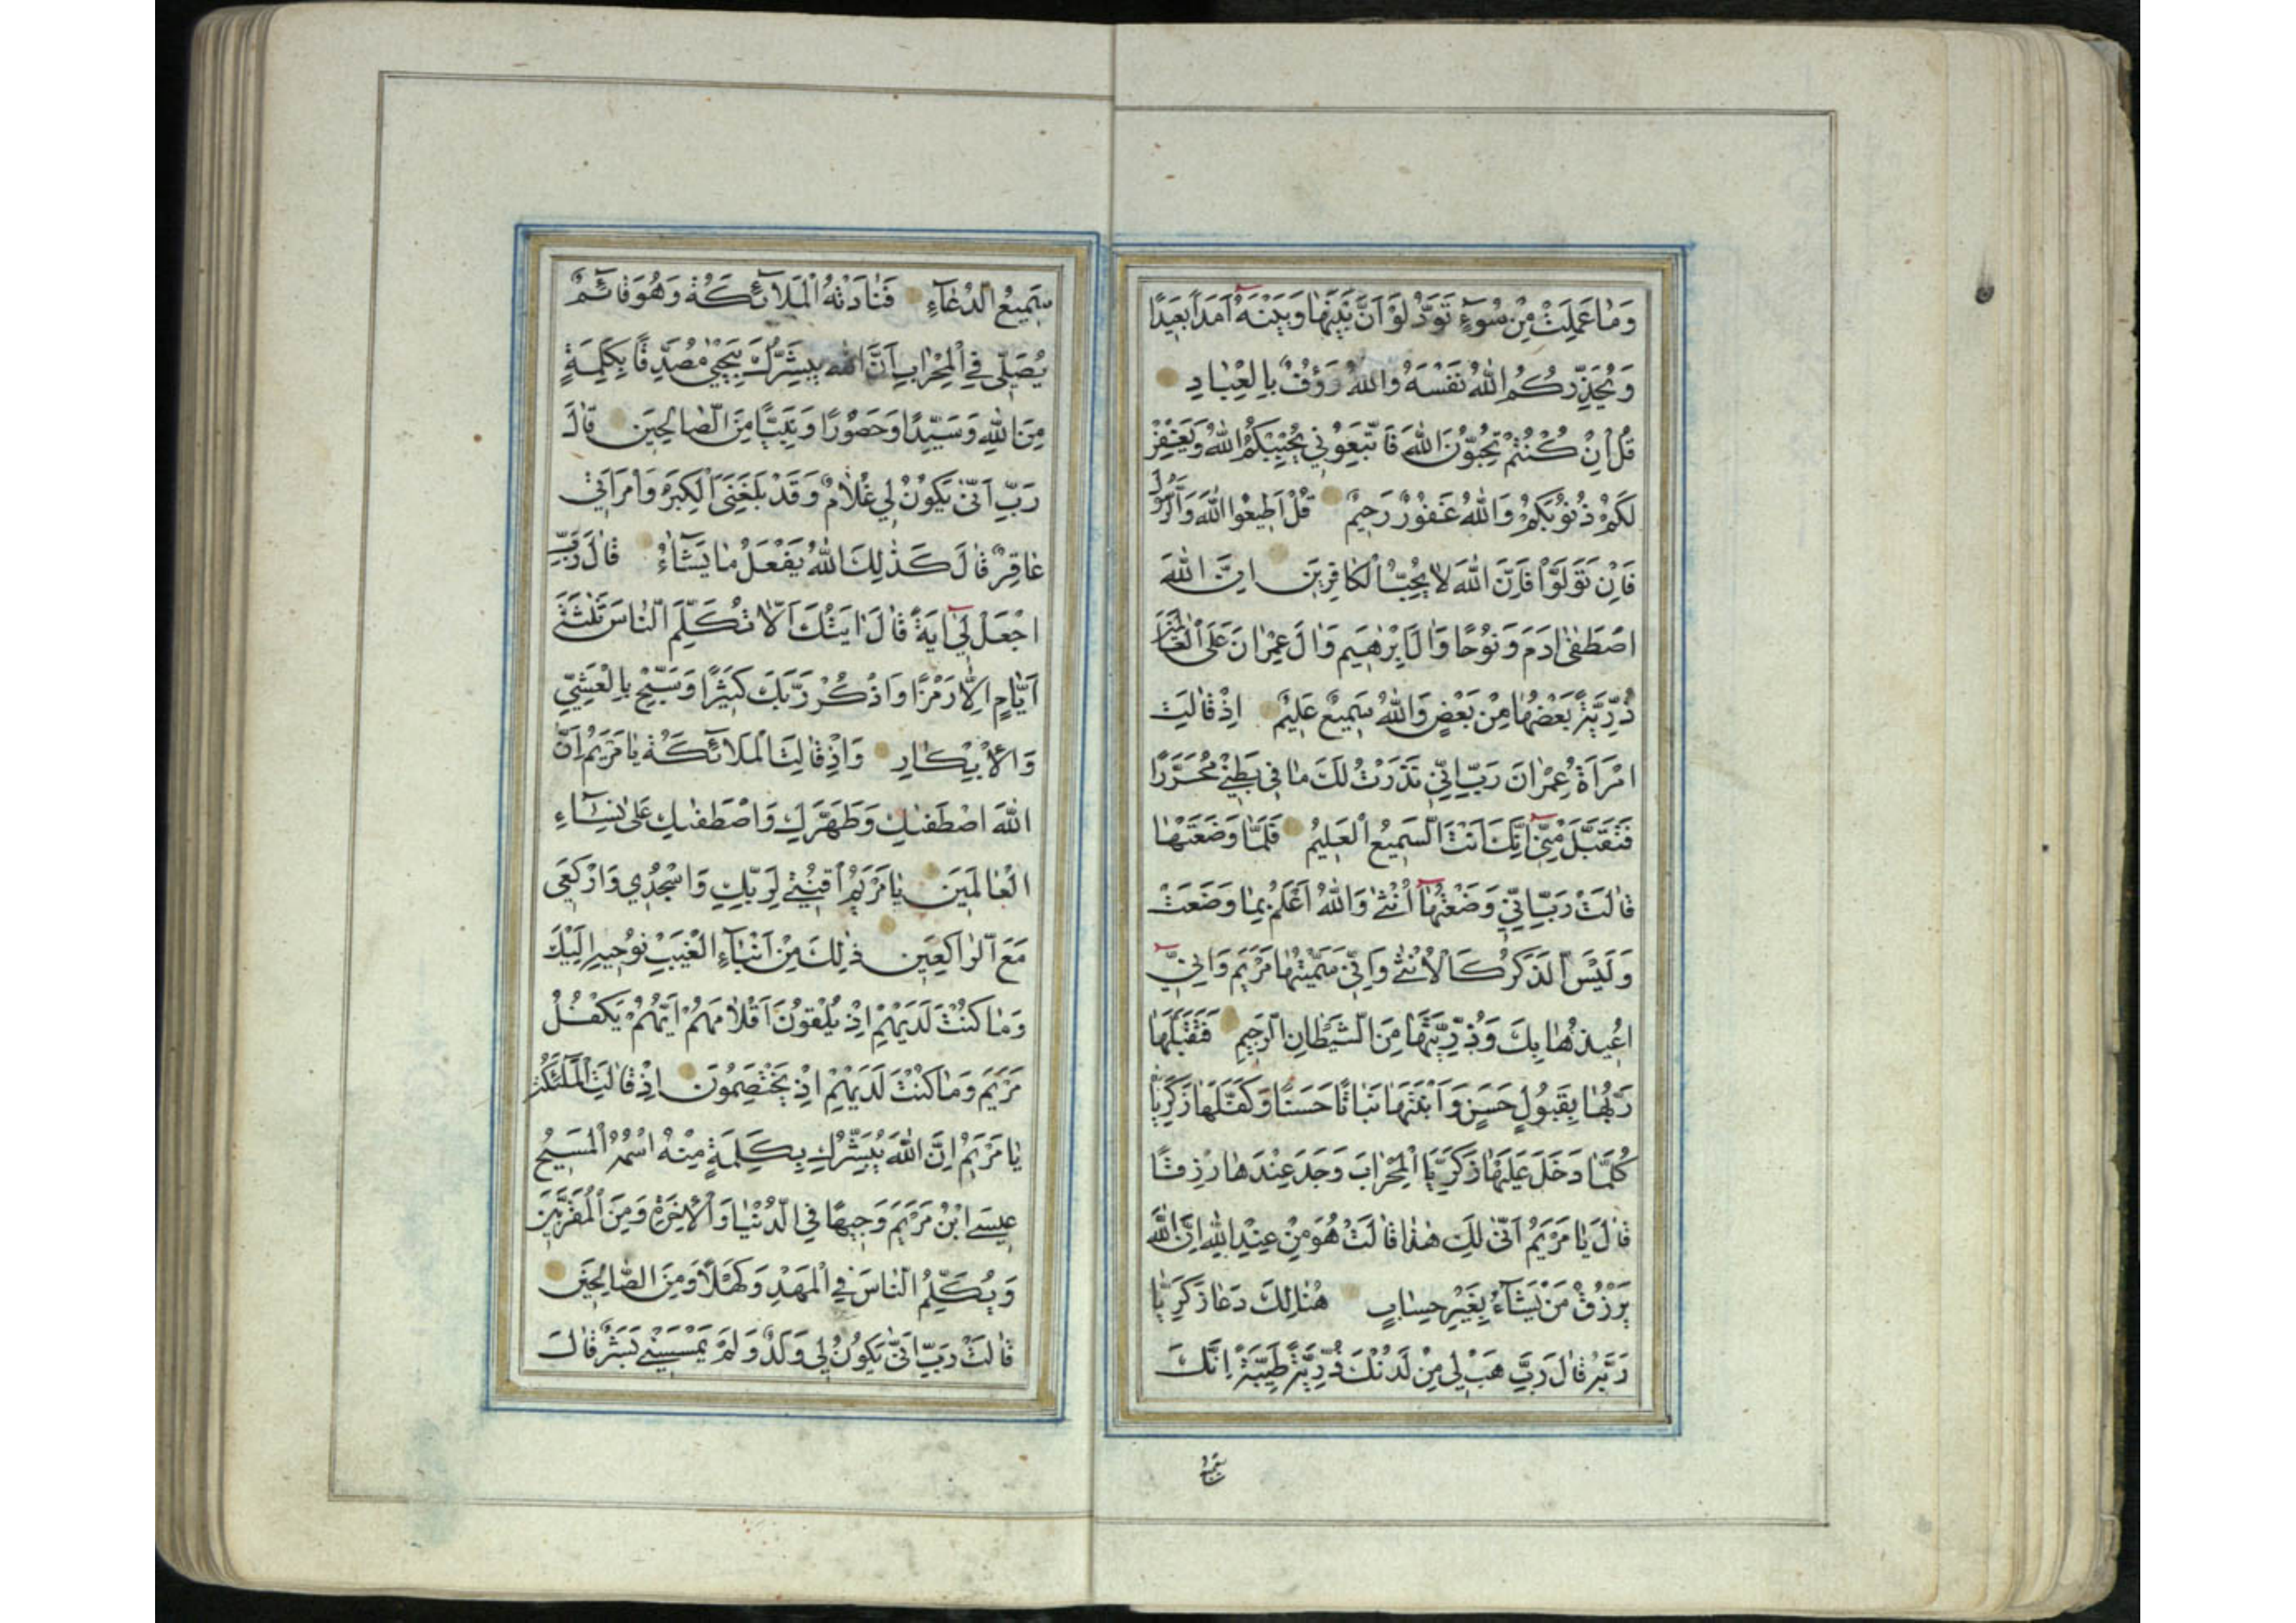 وَمٰا عَمِلَتْ مِنْ سُوٓءٍ تَوَدُّ لَوْ اَنَّ بَيْنَهٰا وَبَيْنَهُٓ اَمَدًا بَعِيدًا
وَيُحَذِّرُكُمُ اللّٰهُ نَفْسَهُ وَاللّٰهُ رَؤُفٌ بِالْعِبٰادِ
قُلْ اِنْ كُنْتُمْ تُحِبُّونَ اللّٰهَ فَاتَّبِعُونِي يُحْبِبْكُمُ اللّٰهُ وَيَغْفِرْ
لَكُمْ ذُنُوبَكُمْ وَاللّٰهُ غَفُورٌ رَحِيمٌ قُلْ اَطِيعُوا اللّٰهَ وَالرَّسُولَ
فَاِنْ تَوَلَّوْا فَاِنَّ اللّٰهَ لٰا يُحِبُّ الْكٰافِرِينَ اِنَّ اللّٰهَ
اصْطَفٰى اٰدَمَ وَنُوحًا وَاٰلَ اِبْرٰهِيمَ وَاٰلَ عِمْرٰانَ عَلَى الْعٰالَمِينَ
ذُرِّيَّةً بَعْضُهٰا مِنْ بَعْضٍ وَاللّٰهُ سَمِيعٌ عَلِيمٌ اِذْ قٰالَتِ
امْرَاَةُ عِمْرٰانَ رَبِّ اِنِّي نَذَرْتُ لَكَ مٰا فِي بَطْنِي مُحَرَّرًا
فَتَقَبَّلْ مِنِّيٓ اِنَّكَ اَنْتَ السَّمِيعُ الْعَلِيمُ فَلَمّٰا وَضَعَتْهٰا
قٰالَتْ رَبِّ اِنِّي وَضَعْتُهٰٓا اُنْثٰى وَاللّٰهُ اَعْلَمُ بِمٰا وَضَعَتْ
وَلَيْسَ الذَّكَرُ كَالْاُنْثٰى وَاِنِّي سَمَّيْتُهٰا مَرْيَمَ وَاِنِّيٓ
اُعِيذُهٰا بِكَ وَذُرِّيَّتَهٰا مِنَ الشَّيْطٰانِ الرَّجِيمِ فَتَقَبَّلَهٰا
رَبُّهٰا بِقَبُولٍ حَسَنٍ وَاَنْبَتَهٰا نَبٰاتًا حَسَنًا وَكَفَّلَهٰا زَكَرِيّٰا
كُلَّمٰا دَخَلَ عَلَيْهٰا زَكَرِيَّا الْمِحْرٰابَ وَجَدَ عِنْدَهٰا رِزْقًا
قٰالَ يٰا مَرْيَمُ اَنّٰى لَكِ هٰذٰا قٰالَتْ هُوَ مِنْ عِنْدِ اللّٰهِ اِنَّ اللّٰهَ
يَرْزُقُ مَنْ يَشٰٓاءُ بِغَيْرِ حِسٰابٍ هُنٰالِكَ دَعٰا زَكَرِيّٰا
رَبَّهُ قٰالَ رَبِّ هَبْ لِي مِنْ لَدُنْكَ ذُرِّيَّةً طَيِّبَةً اِنَّكَ
سَمِيعُ
سَمِيعُ الدُّعٰٓاءِ فَنٰادَتْهُ الْمَلٰٓائِكَةُ وَهُوَ قٰٓائِمٌ
يُصَلِّي فِي الْمِحْرٰابِ اَنَّ اللّٰهَ يُبَشِّرُكَ بِيَحْيٰى مُصَدِّقًا بِكَلِمَةٍ
مِنَ اللّٰهِ وَسَيِّدًا وَحَصُورًا وَنَبِيًّا مِنَ الصّٰالِحِينَ قٰالَ
رَبِّ اَنّٰى يَكُونُ لِي غُلٰامٌ وَقَدْ بَلَغَنِيَ الْكِبَرُ وَامْرَاَتِي
عٰاقِرٌ قٰالَ كَذٰلِكَ اللّٰهُ يَفْعَلُ مٰا يَشٰٓاءُ قٰالَ رَبِّ
اجْعَلْ لِيٓ اٰيَةً قٰالَ اٰيَتُكَ اَلّٰا تُكَلِّمَ النّٰاسَ ثَلٰثَةَ
اَيّٰامٍ اِلّٰا رَمْزًا وَاذْكُرْ رَبَّكَ كَثِيرًا وَسَبِّحْ بِالْعَشِيِّ
وَالْاِبْكٰارِ وَاِذْ قٰالَتِ الْمَلٰٓائِكَةُ يٰا مَرْيَمُ اِنَّ
اللّٰهَ اصْطَفٰيكِ وَطَهَّرَكِ وَاصْطَفٰيكِ عَلٰى نِسٰٓاءِ
الْعٰالَمِينَ يٰا مَرْيَمُ اقْنُتِي لِرَبِّكِ وَاسْجُدِي وَارْكَعِي
مَعَ الرّٰاكِعِينَ ذٰلِكَ مِنْ اَنْبٰٓاءِ الْغَيْبِ نُوحِيهِ اِلَيْكَ
وَمٰا كُنْتَ لَدَيْهِمْ اِذْ يُلْقُونَ اَقْلٰامَهُمْ اَيُّهُمْ يَكْفُلُ
مَرْيَمَ وَمٰا كُنْتَ لَدَيْهِمْ اِذْ يَخْتَصِمُونَ اِذْ قٰالَتِ الْمَلٰٓئِكَةُ
يٰا مَرْيَمُ اِنَّ اللّٰهَ يُبَشِّرُكِ بِكَلِمَةٍ مِنْهُ اسْمُهُ الْمَسِيحُ
عِيسَى ابْنُ مَرْيَمَ وَجِيهًا فِي الدُّنْيٰا وَالْاٰخِرَةِ وَمِنَ الْمُقَرَّبِينَ
وَيُكَلِّمُ النّٰاسَ فِي الْمَهْدِ وَكَهْلًا وَمِنَ الصّٰالِحِينَ
قٰالَتْ رَبِّ اَنّٰى يَكُونُ لِي وَلَدٌ وَلَمْ يَمْسَسْنِي بَشَرٌ قٰالَ